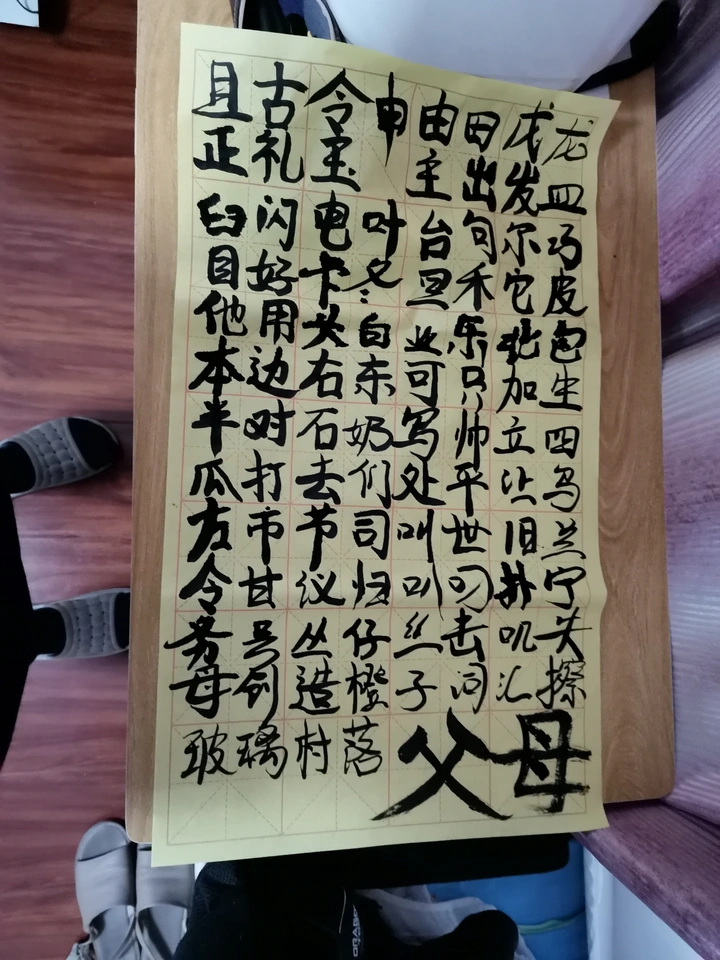 且古令申由田戊龙
正礼宝主出发皿
臼闪电叶台句尔巧
目好卡冬旦禾它皮
他用头白业乐犯包
本边右东可只加生
半对石奶写帅立四
瓜打去们处平让鸟
友市节司叫世旧兰
令甘议归叭叼扑宁
务号丛仔丝击叽失
母创造橙子词汇擦
玻璃村落父母